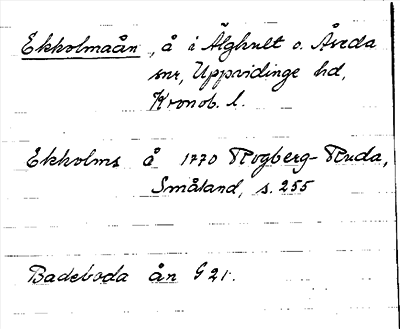 Ekholmaån, å i Älghult o. Åseda
snr, Uppvidinge hd,
Kronob. l.
Ekholms å 1770 Rogberg-Ruda,
Småland, s. 255
Badeboda ån G 21.